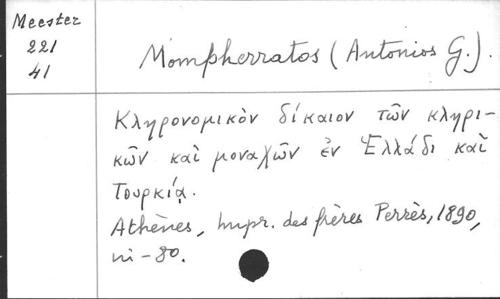 Meester
221
41
Mompherratos (Antonios G.).
Κληρονομικὸν δίκαιον τῶν κληρι-
κῶν καὶ μοναχῶν ἐν Ἑλλάδι καὶ
Τουρκίᾳ.
Athènes, Impr. des frères Perrès, 1890,
in-8o.